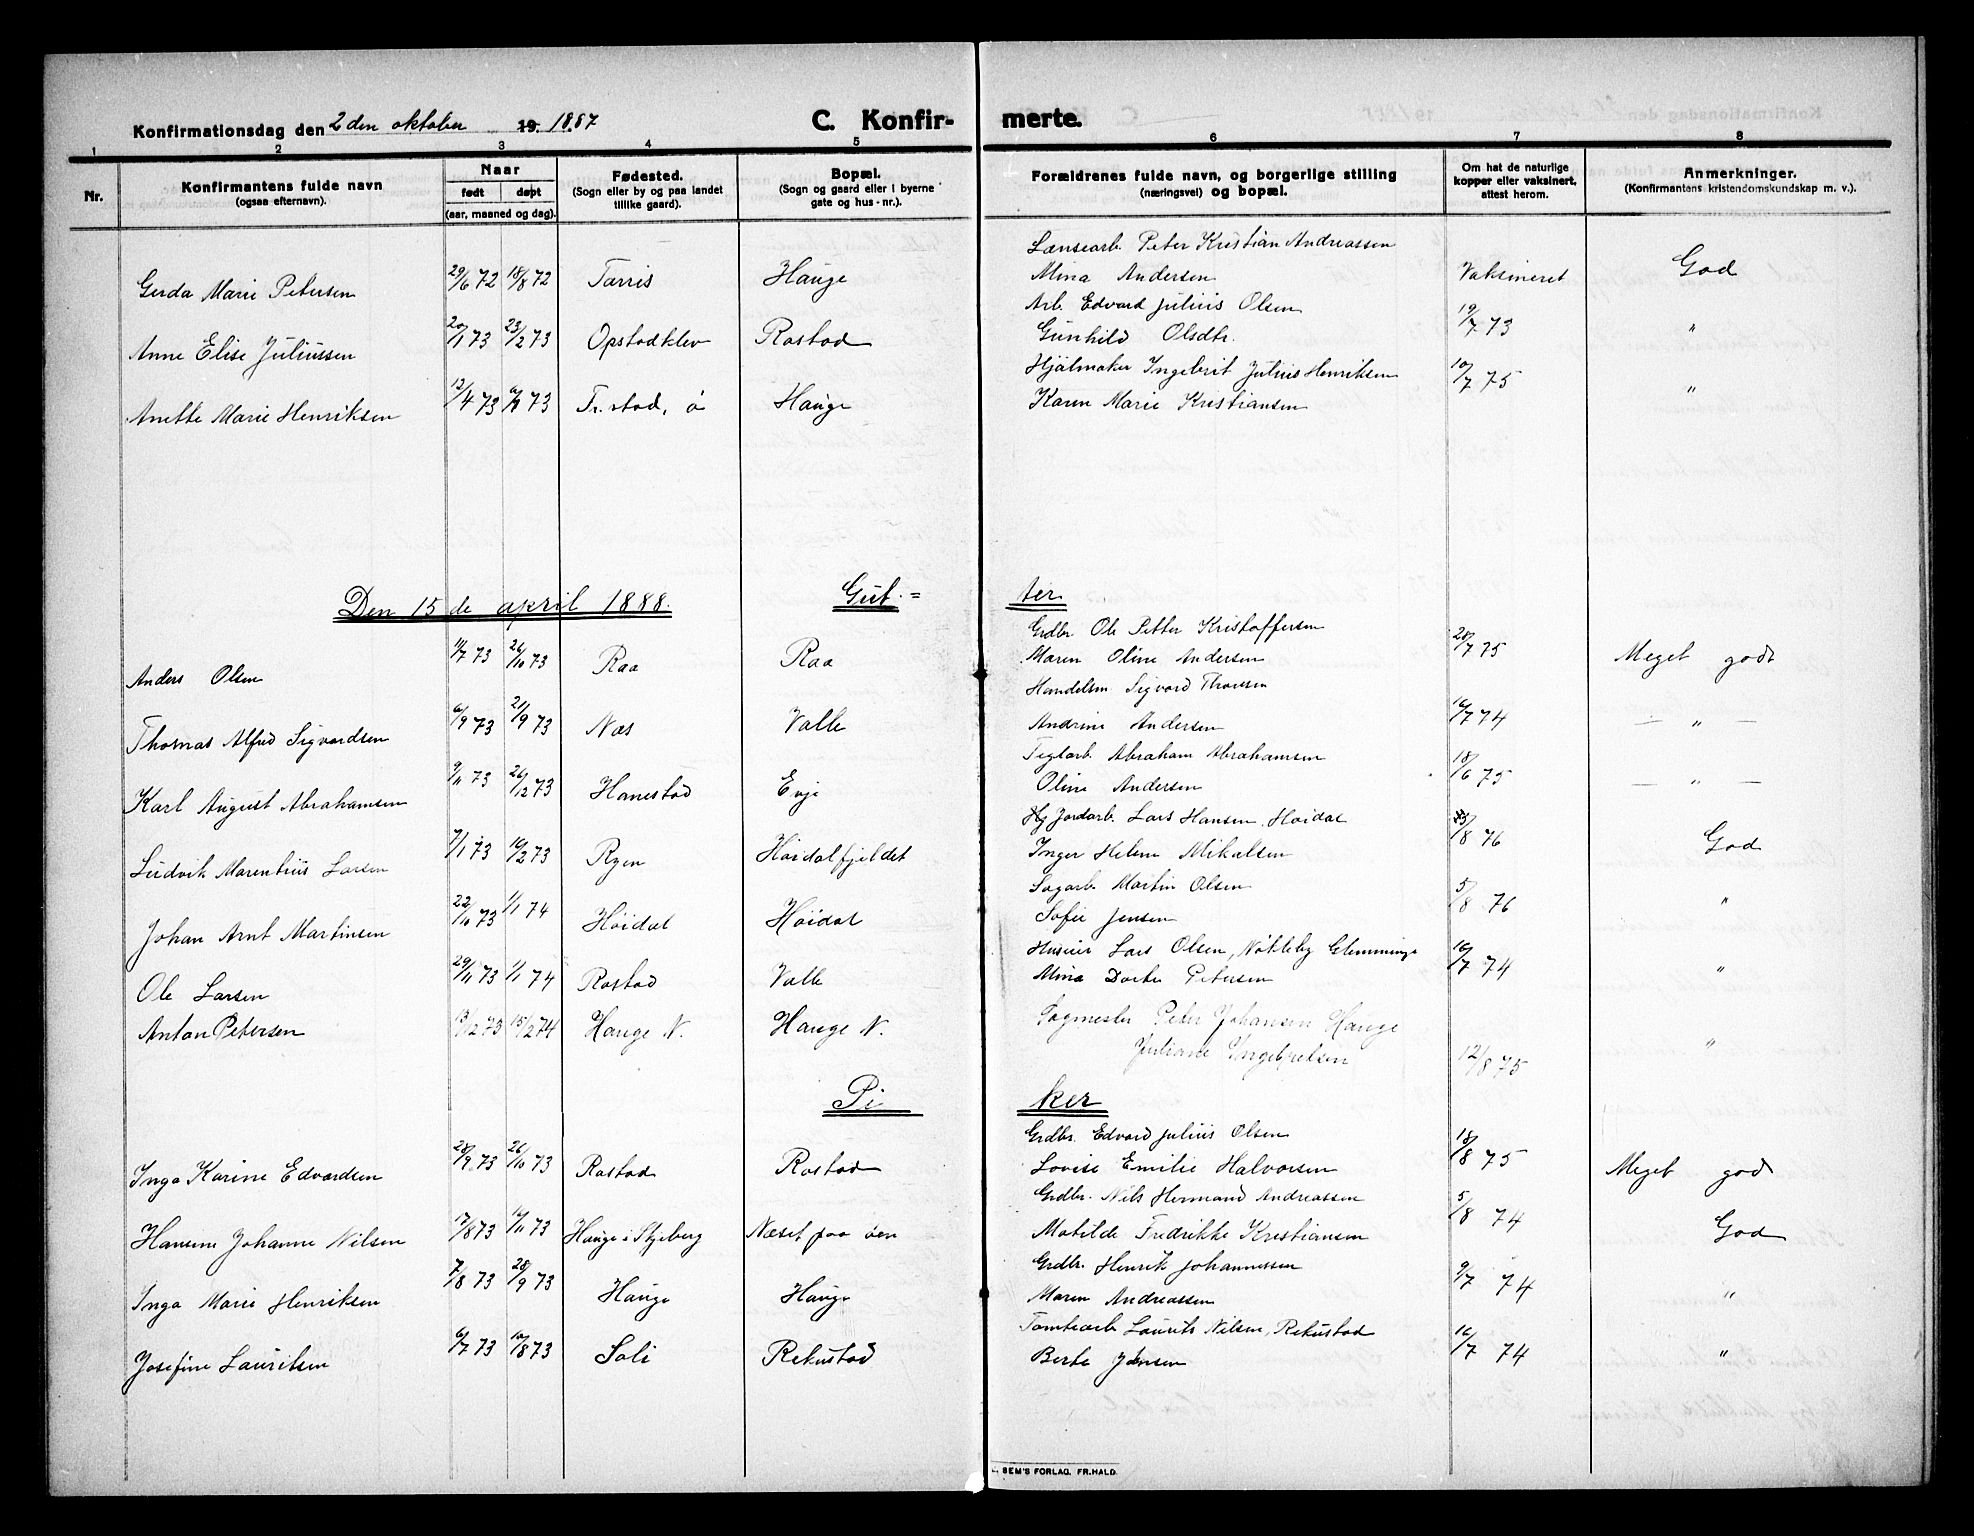 Konfirmationsdag den 2 den oktober 19 1887
C. Konfir-
merte.
1 2 3 4 5 6 7 8
Nr.
Konfirmantens fulde navn
(ogsaa efternavn).
Naar
født døpt
(aar, maaned og dag).
Fødested.
(Sogn eller by og paa landet
tillike gaard).
Bopæl.
(Sogn og gaard eller i byerne
gate og hus-nr.).
Forældrenes fulde navn, og borgerlige stilling
(næringsvei) og bopæl.
Om hat de naturlige
kopper eller vaksinert,
attest herom.
Anmerkninger.
(Konfirmantens kristendomskundskap m. v.).
Lænsearb. Peter Kristian Andreassen
Gerda Marie Petersen 29/6 72 18/8 72 Tarris Hauge Mina Andersen Vaksineret God
Arb. Edvard Julius Olsen
Anne Elise Juliussen 20/1 73 23/2 73 Opstadklev Rostad Gunhild Olsdtr. 19/7 73 "
Hjulmaker Ingebrit Julius Henriksen
Anette Marie Henriksen 12/4 73 6/8 73 Fr.stad, ø Hauge Karen Marie Kristiansen 10/7 75 "
Den 15 de april 1888. Gut-
ter
Grdbr. Ole Petter Kristoffersen
Anders Olsen 11/7 73 26/10 73 Raa Raa Maren Oline Andersen 28/7 75 Meget godt
Handelsm Sigvard Thoresen
Thomas Alfred Sigvardsen 6/9 73 21/9 73 Næs Valle Andrine Andersen 16/7 74 — " —
Teglarb. Abraham Abrahamsen
Karl August Abrahamsen 9/11 73 26/12 73 Hanestad Evje Oline Andersen 18/6 75 — " —
Jordarb. Lars Hansen, Høidal
Ludvik Marentius Larsen 7/1 73 16/2 73 Ryen Høidalfjeldet Inger Helene Mikalsen 23/8 76 God
Sagarb. Martin Olsen
Johan Arnt Martinsen 22/10 73 1/1 74 Høidal Høidal Sofie Jensen 5/8 76 "
Huseier Lars Olsen, Nökleby Glemminge
Ole Larsen 29/11 73 1/1 74 Rostad Valle Mina Dorte Petersen 16/7 74 "
Anton Petersen 13/12 73 15/2 74 Hauge N. Hauge N. Sagmester Peter Johansen Hauge "
Juliane Ingebretsen 12/8 75
Pi
ker
Grdbr. Edvard Julius Olsen
Inga Karine Edvardsen 28/9 73 26/10 73 Rostad Rostad Lovise Emilie Halvorsen 18/8 75 Meget god
Grdbr. Nils Hermand Andreassen
Hansine Johanne Nilsen 17/8 73 16/11 73 Hauge i Skjeberg Næset paa øen Matilde Fredrikke Kristiansen 5/8 74 God
Grdbr. Henrik Johannessen
Inga Marie Henriksen 7/8 73 28/9 73 Hauge Hauge Maren Andreassen 9/7 74 "
Tomtearb Laurits Nilsen, Rekustad
Josefine Lauritsen 6/7 73 10/8 73 Soli Rekustad Berte Jensen 16/7 74 "
SEM'S FORLAG. FR.HALD.